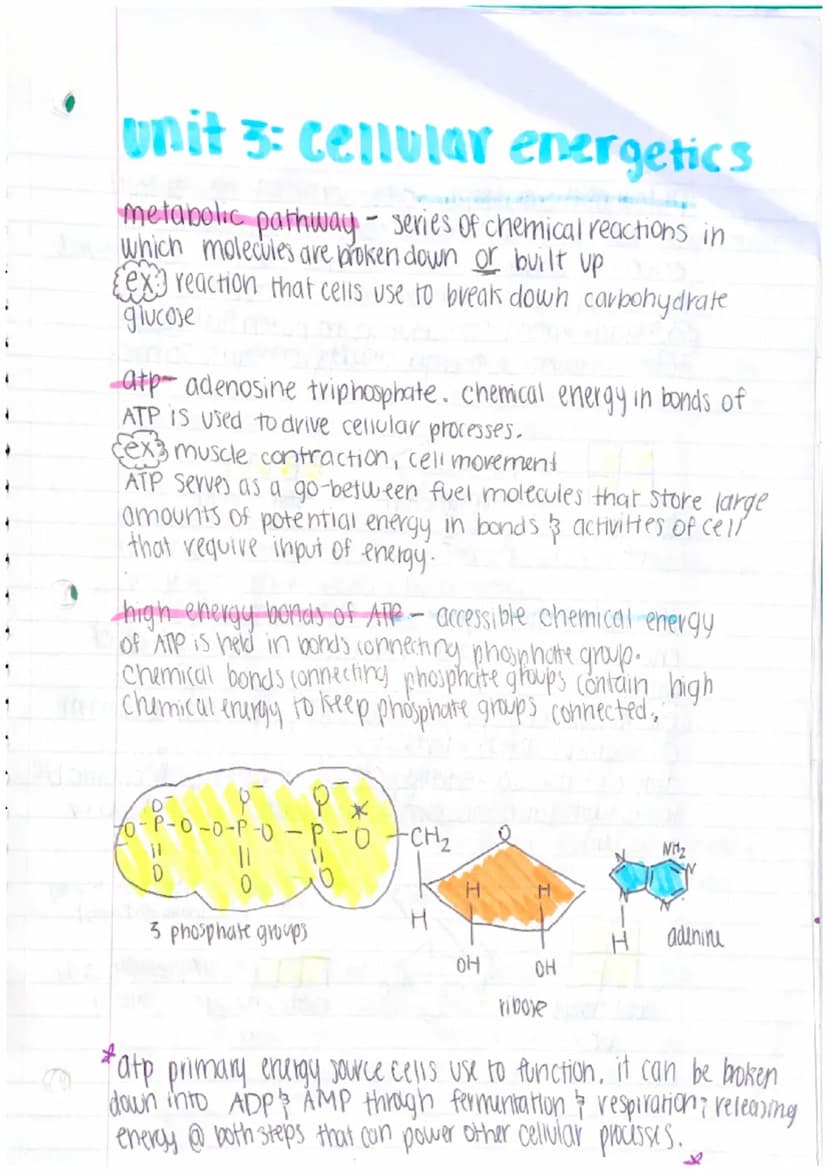 unit 3: cellular energetics
metabolic pathway - series of chemical reactions in
which molecules are broken down or built up
ex: reaction that cells use to break down carbohydrate
glucose
atp - adenosine triphosphate. chemical energy in bonds of
ATP is used to drive cellular processes.
ex: muscle contraction, cell movement
ATP serves as a go-between fuel molecules that store large
amounts of potential energy in bonds & activities of cell
that require input of energy.
high energy bonds of ATP - accessible chemical energy
of ATP is held in bonds connecting phosphate group.
Chemical bonds connecting phosphate groups contain high
chemical energy to keep phosphate groups connected.
O⁻ O⁻ O⁻ *
O-P-O-O-P-O-P-O-CH₂ O NH₂
O O O
N N N N
H H H H
3 phosphate groups adenine
OH OH
ribose
*atp primary energy source cells use to function. it can be broken
down into ADP & AMP through fermuntation & respiration; releasing
energy @ both steps that can power other cellular processes.*